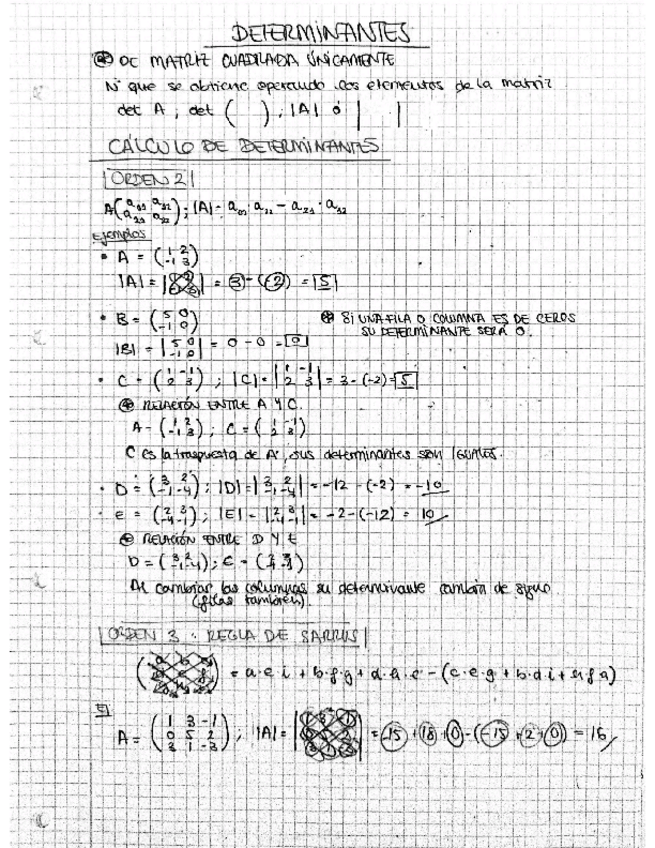 DETERMINANTES
⊛ DE MATRIZ CUADRADA ÚNICAMENTE
Nº que se obtiene operando los elementos de la matriz
det A ; det ( ) ; |A| ó | |
CÁLCULO DE DETERMINANTES
ORDEN 2
Ejemplos
• A = (1 2 / -1 3)
|A| = = 3 - (-2) = 5
• B = (5 0 / -1 0) ⊛ SI UNA FILA O COLUMNA ES DE CEROS
SU DETERMINANTE SERÁ 0.
|B| = |5 0 / -1 0| = 0 - 0 = 0
• C = (1 -1 / 2 3) ; |C| = |1 -1 / 2 3| = 3 - (-2) = 5
⊛ RELACIÓN ENTRE A Y C.
A = (1 2 / -1 3) ; C = (1 -1 / 2 3)
C es la traspuesta de A, sus determinantes son IGUALES.
• D = (3 2 / -1 -4) ; |D| = |3 2 / -1 -4| = -12 - (-2) = -10
• E = (2 3 / -4 -1) ; |E| = |2 3 / -4 -1| = -2 - (-12) = 10
⊛ RELACIÓN ENTRE D Y E
D = (3 2 / -1 -4) ; E = (2 3 / -4 -1)
Al cambiar las columnas su determinante cambia de signo
(filas también).
ORDEN 3 : REGLA DE SARRUS
= a·e·i + b·f·g + d·h·c - (c·e·g + b·d·i + h·f·a)
Ej
A = (1 3 -1 / 0 5 2 / 3 1 -3) ; |A| = = -15 + 18 + 0 - (-15 + 2 + 0) = 16